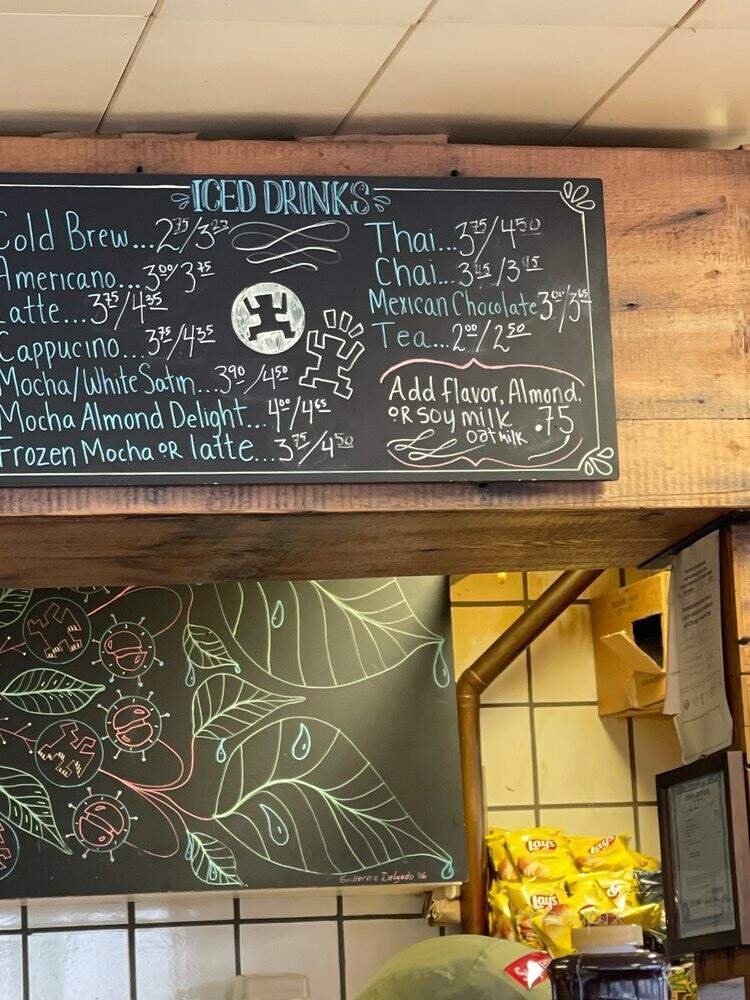 ICED DRINKS
Cold Brew...2 75/3
Americano...3 00/3 75
Latte...3 75/4 35
Cappucino...3 75/4 35
Mocha/White Satin...3 90/4 50
Mocha Almond Delight...4 00/4 65
Frozen Mocha OR latte...3 75/4 50
Thai...3 75/4 50
Chai...3 45/3 95
Mexican Chocolate 3 00/3 65
Tea...2 00/2 50
Add flavor, Almond,
OR soy milk .75
oat milk
Guillermo Delgado '16
Lay's
Lay's
Lay's